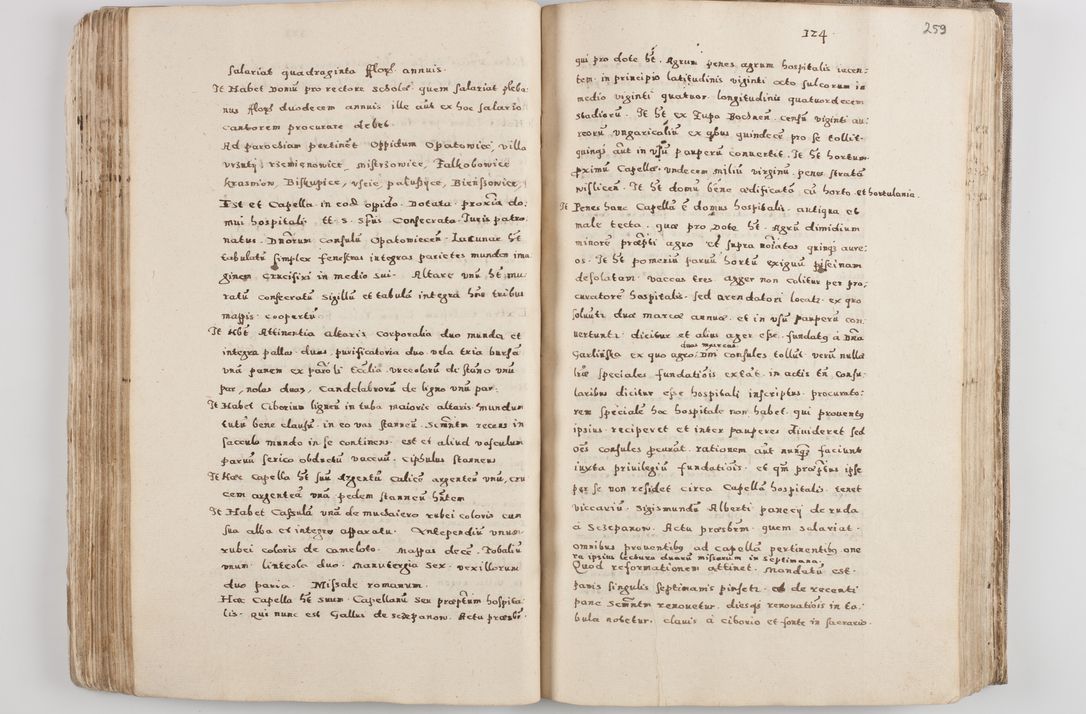 salariat quadraginta floꝝ annuis.
Jt Habet bonū pro rectore scholæ quem salariat pleba-
nus floꝝ duodecem annuis ille aūt ex hoc salario
cantorem procurare debet.
Ad parochiam pertinēt Oppidum Opatowiec, villa
Krasmion, Biskupice, vscie,
Est et Capella in eod oppido. Dotata. proxīa do-
mui hospitali tt. s. spūs Consecrata. Juris patro
natus. Dnōrum Consulū Opatowiecen. Lacunar ht
tabulatū simplex fenestras integras parietes mundos ima
ginem crucifixi in medio sui. Altare vnū ht mu
ratū consecratū sigillū et tabulā integrā hns tribus
mappis coopertū
Jt Hbt Attinentia altaris corporalia duo munda et
integra pallas duas, purificatoria duo vela tria bursā
vnā panem ex vrceolorū de stāno vnū
par, nolas duas, Candelabrorū de ligno vnū par.
Jt Habet Ciborium ligneū in tuba maioris altaris mundum
tutū bene clausū in eo vas stanneū. Scmntm recens in
sacculo mundo in se continens. est et aliud vasculum
parvū serico obductū vacuum. Ciphulus stanneus
Jt Hæc capella ht suū Argentū Calicē argenteū vnū, cru
cem argenteā vnā pedem stanneū hntem
Jt Habet Casulā vnā de muchaiero rubei coloris cum
sua alba et integro apparatu. Antependiū vnum
rubei coloris de cameloto. Mappas decē. Tobaliū
vnum linteola duo. Manutergia sex. vexillorum
duo paria. Missale romanum.
Hæc Capella ht suum Capellanū seu præptum hospita
lis. qui nunc est Gallus de sczepanow. Actu præsbr.
124.
259
qui pro dote ht. Agrum penes agrum hospitalis iacen-
tem in principio latitudinis viginti octo sulcorum in
medio viginti quatuor. longitudinis quatuordecem
stadiorū. Jt ht ex Zupa Bochnen. censū viginti au-
reorū vngaricaliū ex qbus quindecē pro se tollit.
quinqꝫ aūt in vsū pauperū conuertit. Jt ht hortum
pximū Capellæ vndecem miliū virginū. penes stratā
wislicen. Jt ht domū bene ædificatā cū horto et hortulania.
Jt Penes hanc Capellā ē domus hospitalis. antiqua et
male tecta. quæ pro dote ht. Agrū dimidium
minorē præpti agro et supra notatos quinqꝫ aure-
os. Jt ht pomeriū paruū hortū exiguū piscinam
desolatam. vaccas tres. agger non colitur per pro-
curatorē hospitalis. sed arendatori locatꝛ. ex quo
soluūt duæ marcæ annuæ. et in vsū pauperū con-
uertuntꝛ. dicitur et alius ager esse fundatꝰ a Dna
duas marcas
Garlińska ex quo agro, Dni consules tollūt. verū nullæ
lræ speciales fundatiōis extāt. in actis tn̄ consu-
laribus dicitur esse hospitali inscriptus. procurato-
rem speciale hoc hospitale non habet. qui prouentꝰ
ipsius reciperet et inter pauperes diuideret sed
oēs consules rationem aūt nunqꝫ faciunt
iuxta priuilegiū fundatiōis. et qm̄ præptus ipse
per se non residet circa Capellā hospitalis. tenet
viccariū. Sigismundū Alberti de ruda
a Sczepanow. Actu præsbrm. quem salariat.
omnibus prouentibus ad capellā pertinentibus one
ra ipsius lectura duarū missarum in septimana.
Quod reformationem attinet. Mandatū est.
panis singulis septimanis pinsetꝛ. de recenti
pane scmntm renouetur. diesqꝫ renouatiōis in ta-
bula notetur. clauis a ciborio et fonte in sacrario.